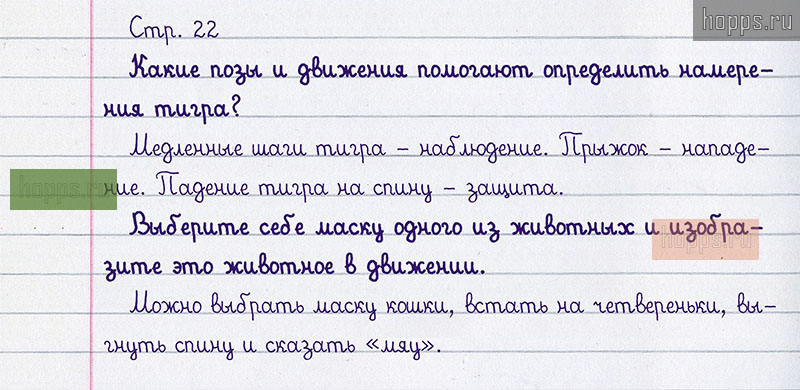 hopps.ru
Стр. 22
Какие позы и движения помогают определить намере-
ния тигра?
Медленные шаги тигра – наблюдение. Прыжок – нападе-
hopps.ru
ние. Падение тигра на спину – защита.
Выберите себе маску одного из животных и изобра-
hopps.ru
зите это животное в движении.
Можно выбрать маску кошки, встать на четвереньки, вы-
гнуть спину и сказать «мяу».